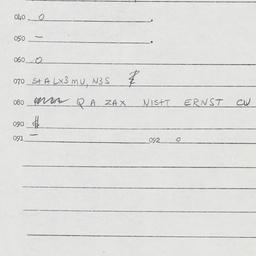 040 0 .
050 – .
060 0
070 StALX3MU, N3S
080 Q A ZAX NISHT ERNST CW
090
091 092 0